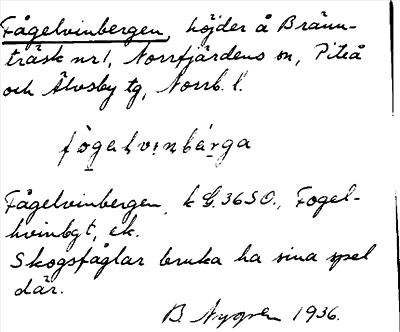 Fågelvinbergen, höjder å Bränn-
träsk nr 1, Norrfjärdens sn, Piteå
och Älvsby tg, Norrb. l.
fo̱galvɩnbærga
Fågelvinbergen, k G. 36 SO., Fogel-
hvinbgt, ek.
Skogsfåglar bruka ha sina spel
där.
B. Nygren 1936.